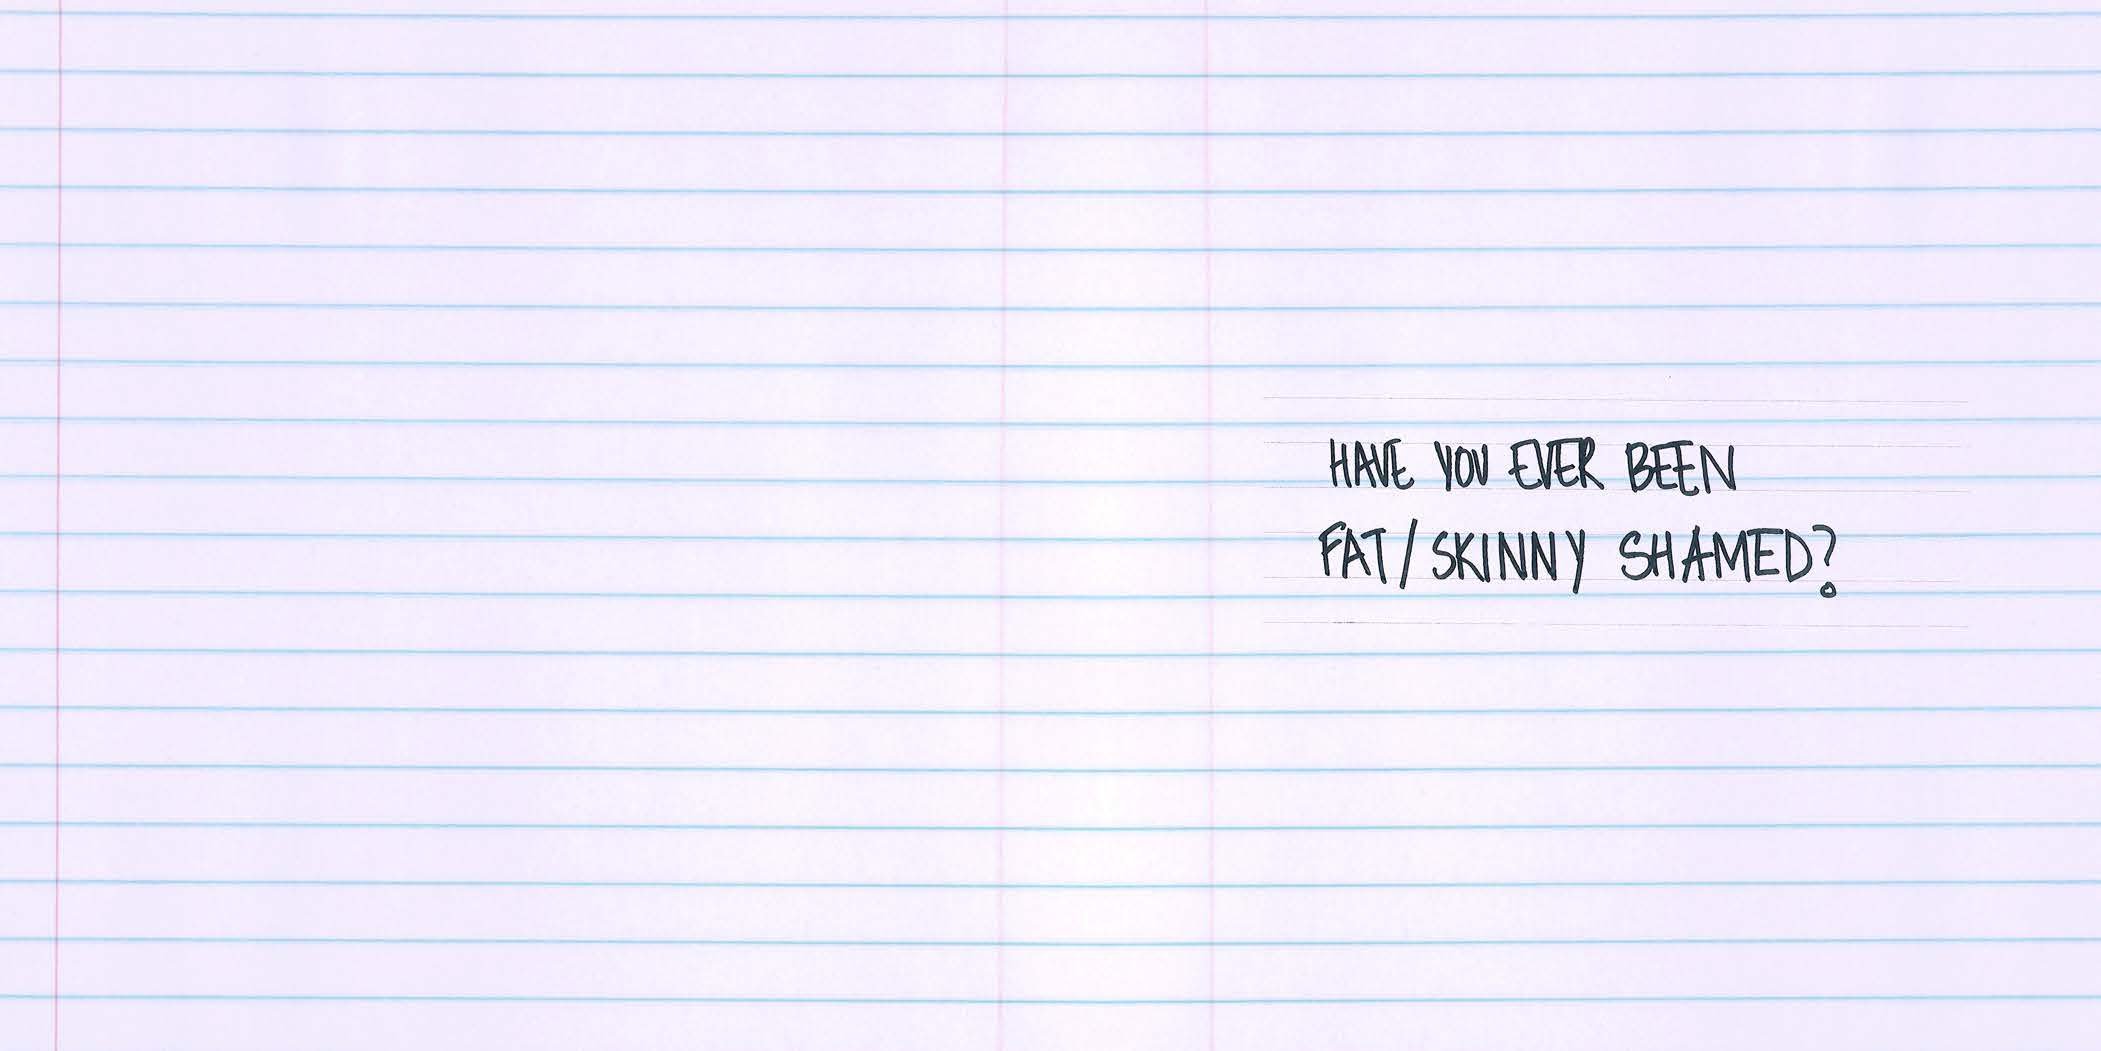 HAVE YOU EVER BEEN
FAT/SKINNY SHAMED?